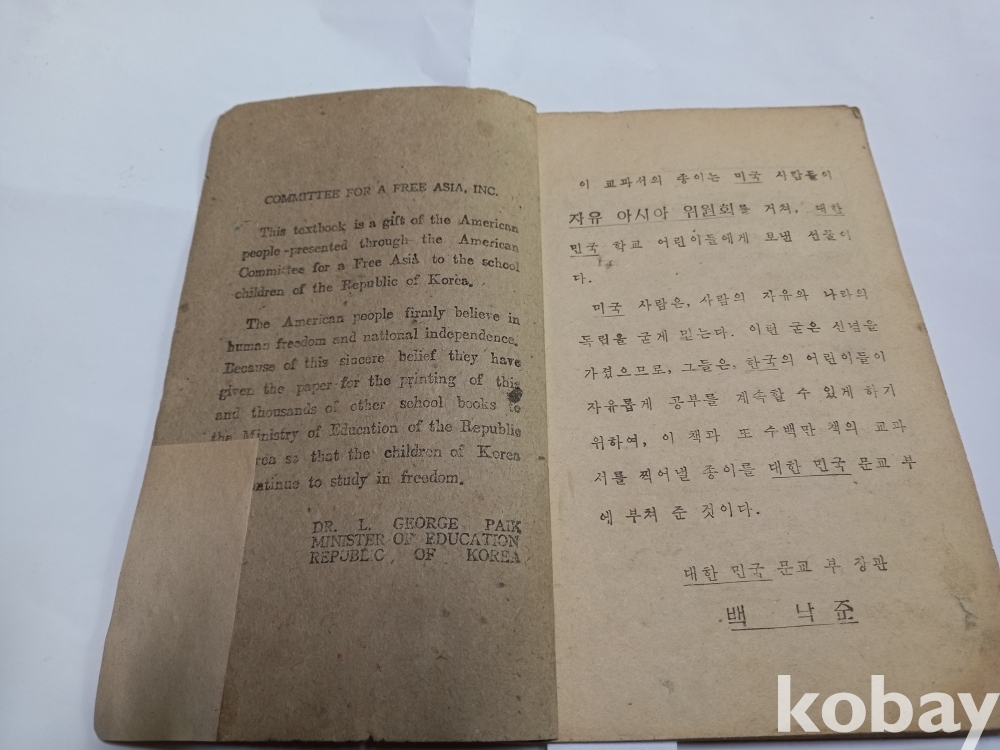 COMMITTEE FOR A FREE ASIA, INC.
This textbook is a gift of the American
people-presented through the American
Committee for a Free Asia to the school
children of the Republic of Korea.
The American people firmly believe in
human freedom and national independence.
Because of this sincere belief they have
given the paper for the printing of this
and thousands of other school books to
the Ministry of Education of the Republic
rea so that the children of Korea
ntinue to study in freedom.
DR. L. GEORGE PAIK
MINISTER OF EDUCATION
REPUBLIC OF KOREA
이 교과서의 종이는 미국 사람들이
자유 아시아 위원회를 거쳐, 대한
민국 학교 어린이들에게 보낸 선물이
다.
미국 사람은, 사람의 자유와 나라의
독립을 굳게 믿는다. 이런 굳은 신념을
가졌으므로, 그들은, 한국의 어린이들이
자유롭게 공부를 계속할 수 있게 하기
위하여, 이 책과 또 수백만 책의 교과
서를 찍어낼 종이를 대한 민국 문교 부
에 부쳐 준 것이다.
대한 민국 문교 부 장관
백 낙 준
kobay